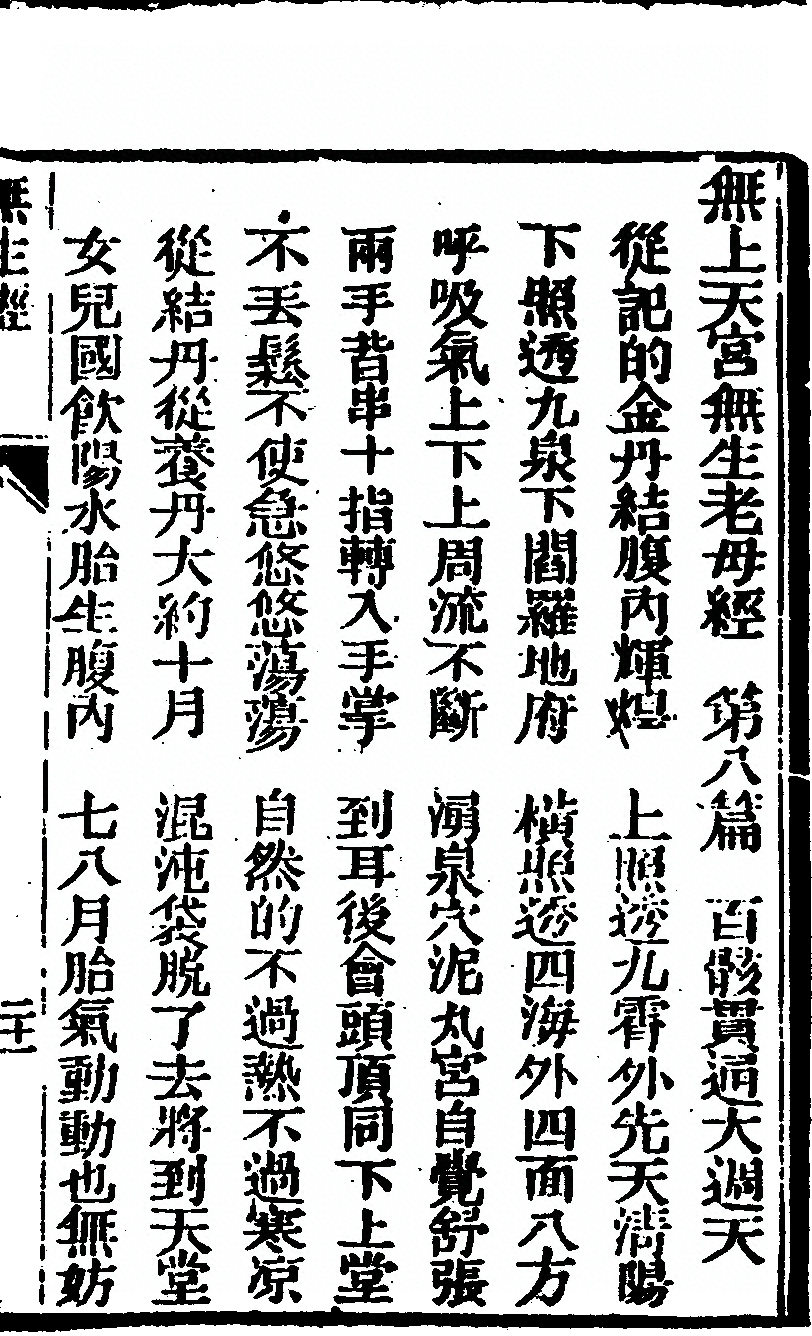 無上天宮無生老母經　第八篇　百骸貫通大週天
從記的金丹結腹內輝煌　上照透九霄外先天清陽
下照透九泉下閻羅地府　橫照透四海外四面八方
呼吸氣上下上周流不斷　湧泉穴泥丸宮自覺舒張
兩手背串十指轉入手掌　到耳後會頭頂同下上堂
不丟鬆不使急悠悠蕩蕩　自然的不過熱不過寒凉
從結丹從養丹大約十月　混沌袋脫了去將到天堂
女兒國飲陽水胎生腹內　七八月胎氣動動也無妨
無生經　二十一